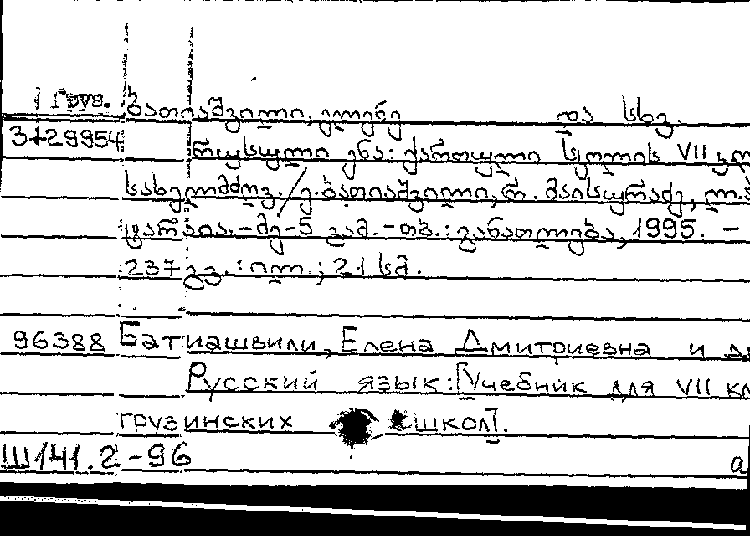 Груз. ბათიაშვილი, ელენე და სხვ.
3-129954 რუსული ენა: ქართული სკოლის VII კლ
სახელმძღვ. / ე. ბათიაშვილი, რ. მაისურაძე,
- მე-5 გამ. - თბ.: განათლება, 1995. -
237 გვ.: ილ.; 21 სმ.
96388 Батиашвили, Елена Дмитриевна и др
Русский язык: [Учебник для VII кл
грузинских школ].
Ш141.2-96 а